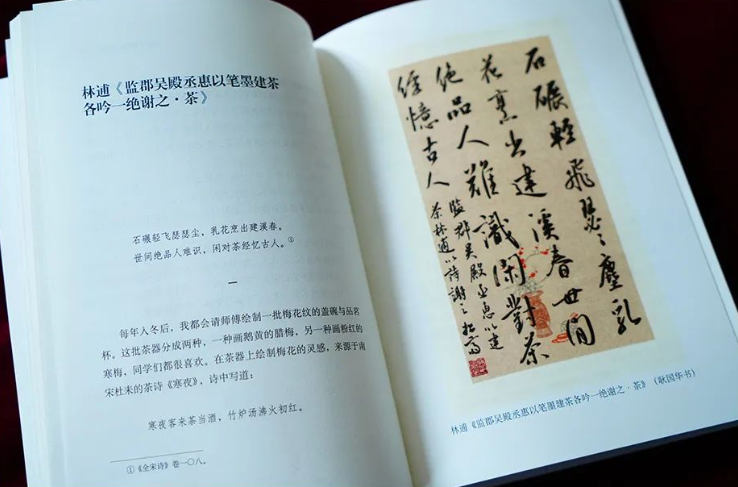 林逋《监郡吴殿丞惠以笔墨建茶
各吟一绝谢之·茶》
石碾轻飞瑟瑟尘，乳花烹出建溪春。
世间绝品人难识，闲对茶经忆古人。①
一
每年入冬后，我都会请师傅绘制一批梅花纹的盖碗与品茗
杯。这批茶器分成两种，一种画鹅黄的腊梅，另一种画粉红的
寒梅，同学们都很喜欢。在茶器上绘制梅花的灵感，来源于南
宋杜耒的茶诗《寒夜》，诗中写道：
寒夜客来茶当酒，竹炉汤沸火初红。
①《全宋诗》卷一〇八。
石碾輕飛瑟々塵乳
花烹出建溪春世间
绝品人難識闲對茶
經憶古人
監郡吴殿丞惠以建
茶林逋以诗謝之
林逋《监郡吴殿丞惠以笔墨建茶各吟一绝谢之·茶》（耿国华书）